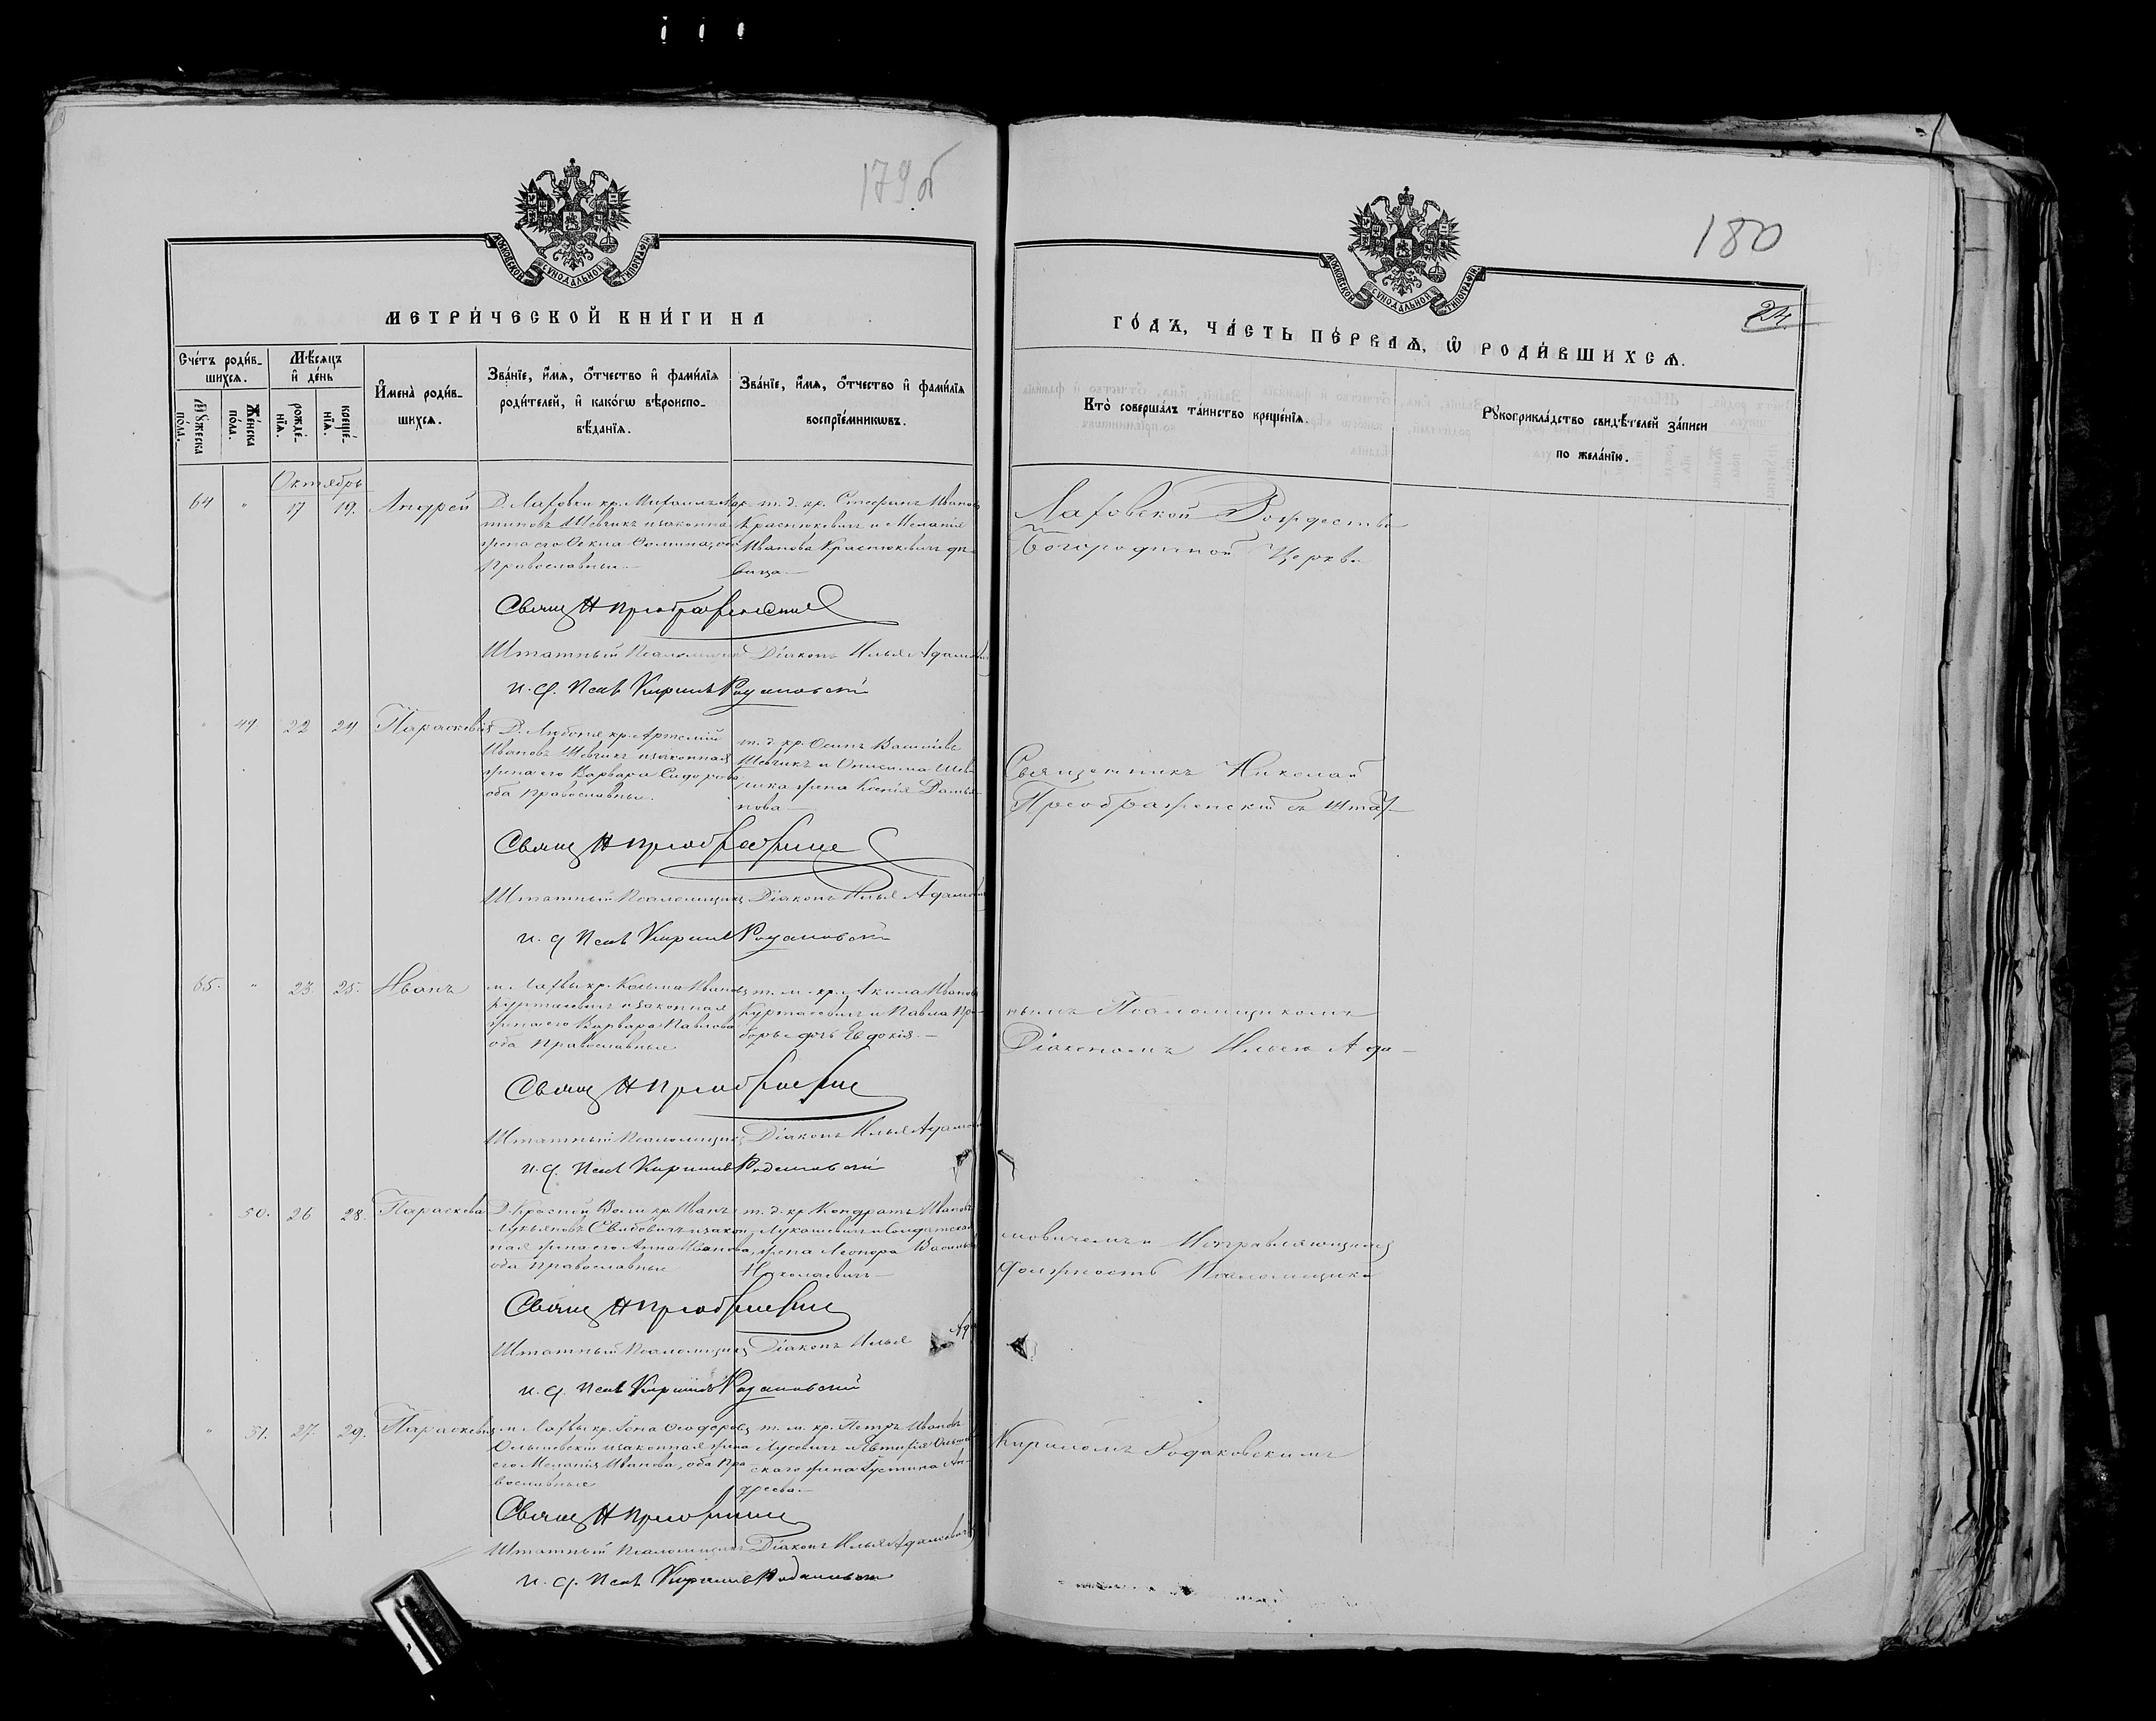 179.об
МОСКОВСКОЙ СѴНОДАЛЬНОЙ ТИПОГРАФІИ
МЕТРИ́ЧЕСКОЙ КНИ́ГИ НА
Сче́тъ роди́в-
шихсѧ.
Мꙋ́жеска
по́ла.
Же́нска
по́ла.
Мѣ́сѧцъ
и҆ де́нь
рожде́-
нїѧ.
креще́-
нїѧ.
И҆мена̀ роди́в-
шихсѧ.
Зва́нїе, и҆́мѧ, ѻ҆́тчество и҆ фами́лїѧ
роди́телей, и҆ како́гѡ вѣроиспо-
вѣ́данїѧ.
Зва́нїе, и҆́мѧ, ѻ҆́тчество и҆ фами́лїѧ
воспрїе́мникѡвъ.
Октябрь
64 " 17 19. Андрей
Д. Лаховки кр. Михаилъ Мар-
тиновъ Шевчикъ и законная
жена его Оома Оомина, оба
Православные
т. д. кр. Стефанъ Ивановъ
Краснюкевичъ и Меланія
Иванова Краснюкевичъ дѣ-
вица
Свящ Н Преображенскій
Штатный Псаломщикъ Діаконъ Илья Адамовичъ
и. д. Псал Кириллъ Родаковскій
" 49 22 24 Параскевія
Д. кр. Артемій
Ивановъ Шевчикъ и законная
жена его Варвара Сидорова
оба Православные.
т. д. кр. Осипъ Васильевъ
Шевчикъ и Онисима Шев-
чика жена Ксенія Дамья-
нова
Свящ Н Преображенскій
Штатный Псаломщикъ Діаконъ Илья Адамовичъ
и. д. Псал Кириллъ Родаковскій
65. " 23. 25. Иванъ
м. Лахвы кр. Козьма Ивановъ
Куртасевичъ и законная
жена его Варвара Павлова
оба Православные
т. м. кр. Акила Ивановъ
Куртасевичъ и Павла
дочь Евдокія.
Свящ Н Преображенскій
Штатный Псаломщикъ Діаконъ Илья Адамовичъ
и. д. Псал Кириллъ Родаковскій
" 50. 26 28. Параскева
Д. Красной Воли кр. Иванъ
Лукьяновъ и закон-
ная жена его Анна Иванова,
оба Православные
т. д. кр. Кондратъ Ивановъ
Лукашевичъ и Солдатская
жена Леонора Васильева
Николаевичъ
Свящ Н Преображенскій
Штатный Псаломщикъ Діаконъ Илья Ада
и. д. Псал Кириллъ Родаковскій
" 51. 27. 29. Параскевія
м. Лахвы кр. Іона Ѳеодоровъ
Ольшевскій и законная жена
его Меланія Иванова, оба Пра-
вославные
т. м. кр. Петръ Ивановъ
Лусевичъ и Евтихія Ольшев-
скаго жена Іустина Ан-
дреева
Свящ Н Преображенскій
Штатный Псаломщикъ Діаконъ Илья Адамовичъ
и. д. Псал Кириллъ Родаковскій
180
МОСКОВСКОЙ СѴНОДАЛЬНОЙ ТИПОГРАФІИ
ГО́ДЪ, ЧА́СТЬ ПЕ́РВАѦ, Ѡ҆ РОДИ́ВШИХСѦ.
Кто̀ соверша́лъ та́инство креще́нїѧ.
Рꙋкоприкла́дство свидѣ́телей за́писи
по жела́нїю.
Лаховской Рождество
Богородичной Церкви
Священникъ Николай
Преображенскій съ Штат-
нымъ Псаломщикомъ
Діакономъ Ильею Ада-
мовичемъ и Исправляющимъ
должность Псаломщика
Кириломъ Родаковскимъ